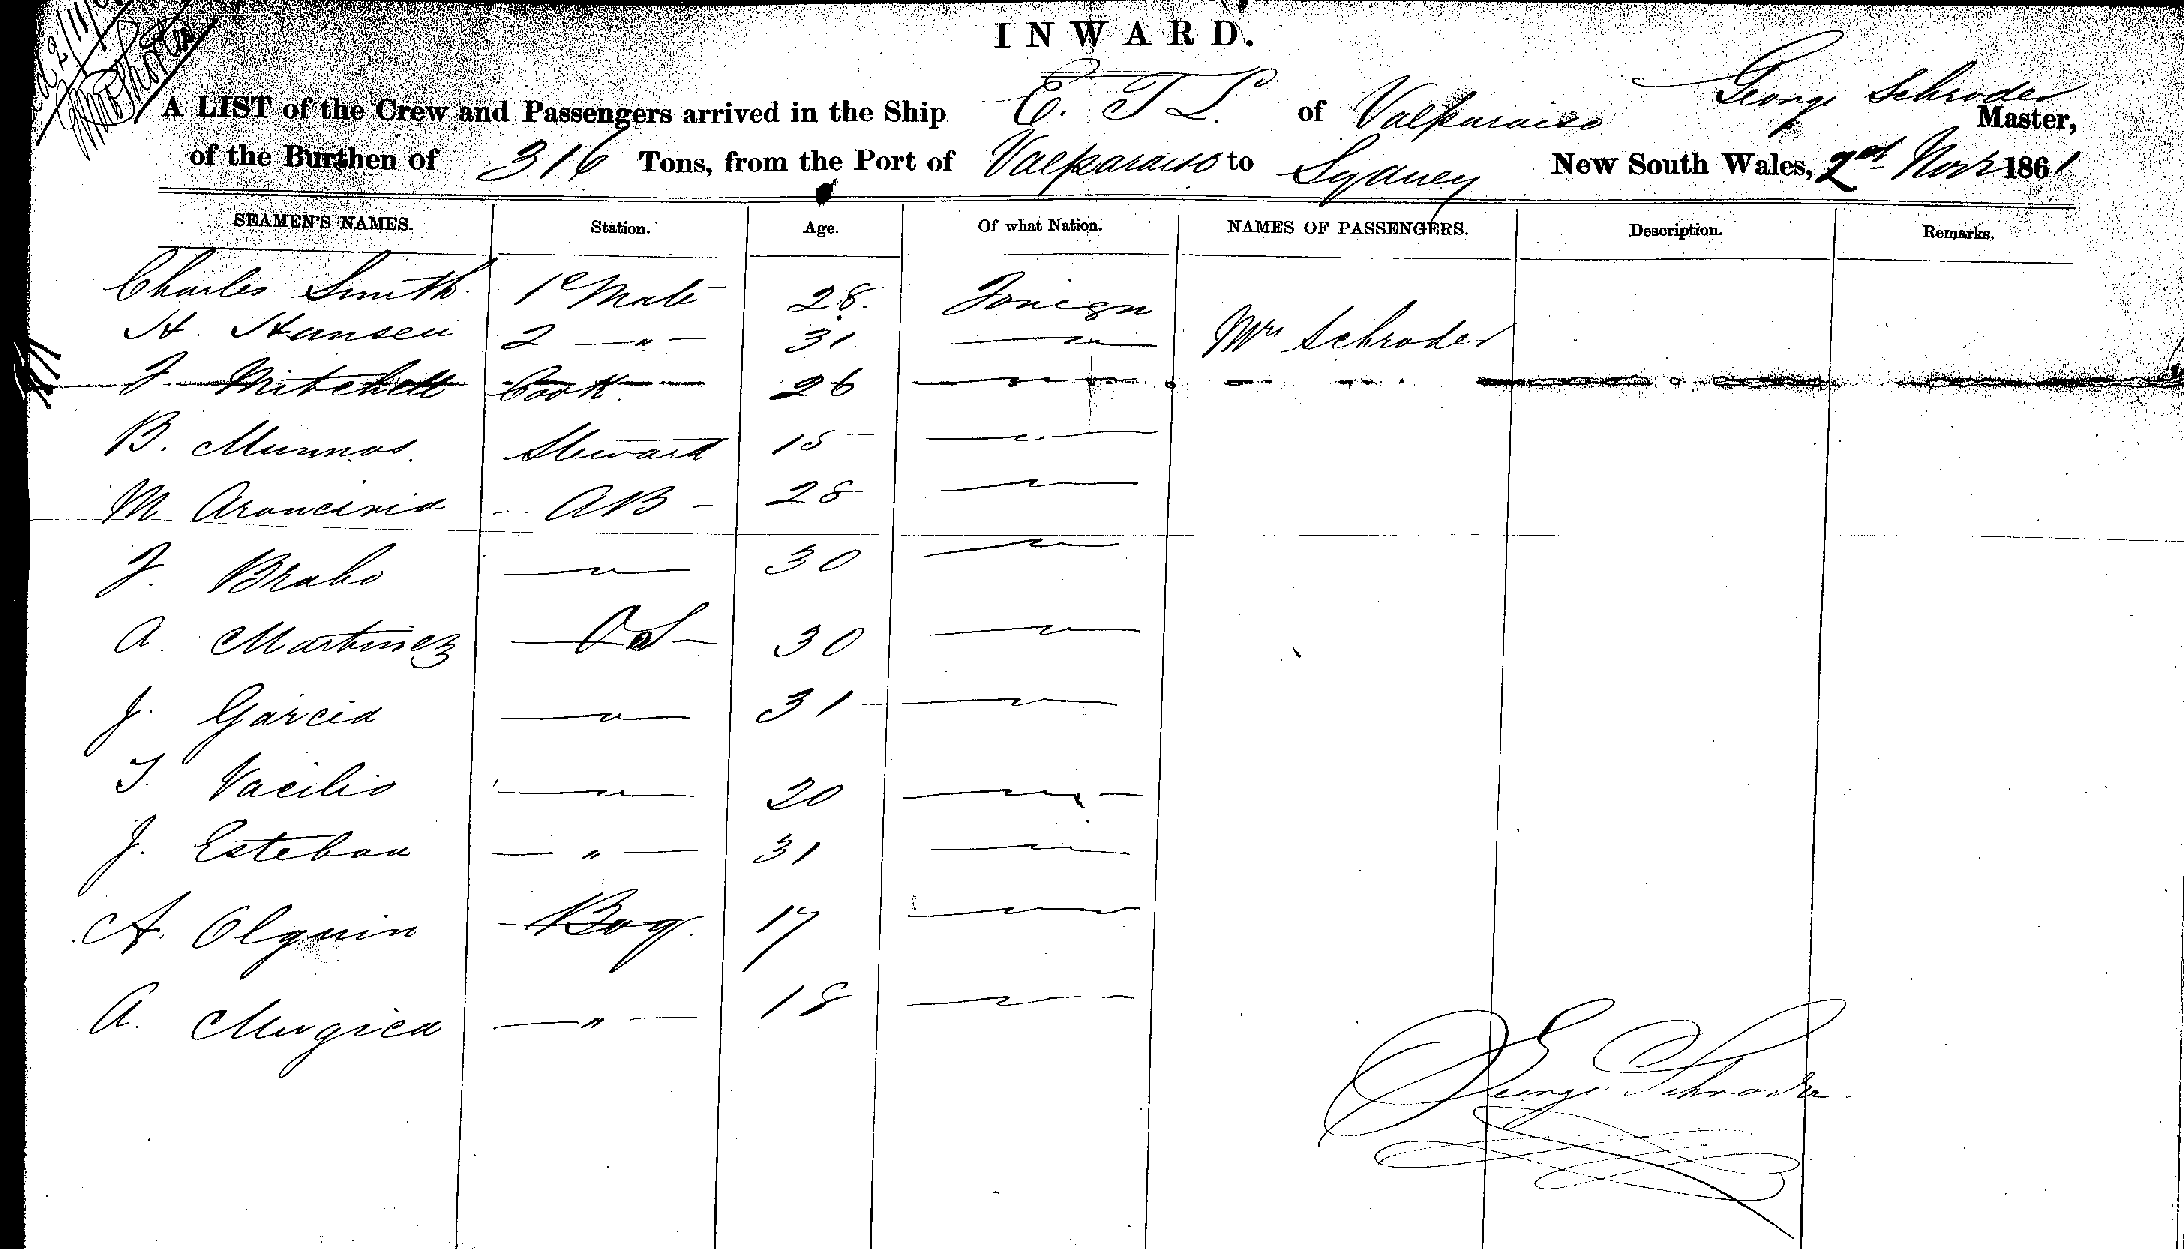 INWARD.
A LIST of the Crew and Passengers arrived in the Ship E. T L. of Valparaiso George Schroder Master,
of the Burthen of 316 Tons, from the Port of Valparaiso to Sydney New South Wales, 2nd Novr 1861
SEAMEN'S NAMES. Station. Age. Of what Nation. NAMES OF PASSENGERS. Description. Remarks.
Charles Smith 1e Mate 28. Foreign
H. Hansen 2 — " — 31 — " — Mrs Schroder
J. Mitchell Cook 26 — " —
B. Munnos. Steward 15 — " —
M Arancivia AB 28 — " —
J. Brabo — " — 30 — " —
A. Martinez OS 30 — " —
J. Garcia — " — 31 — " —
T. Vacilio — " — 20 — " —
J. Esteban — " — 31 — " —
A. Olguin Boy. 17 — " —
A. Mugica — " — 18 — " —
George Schroder